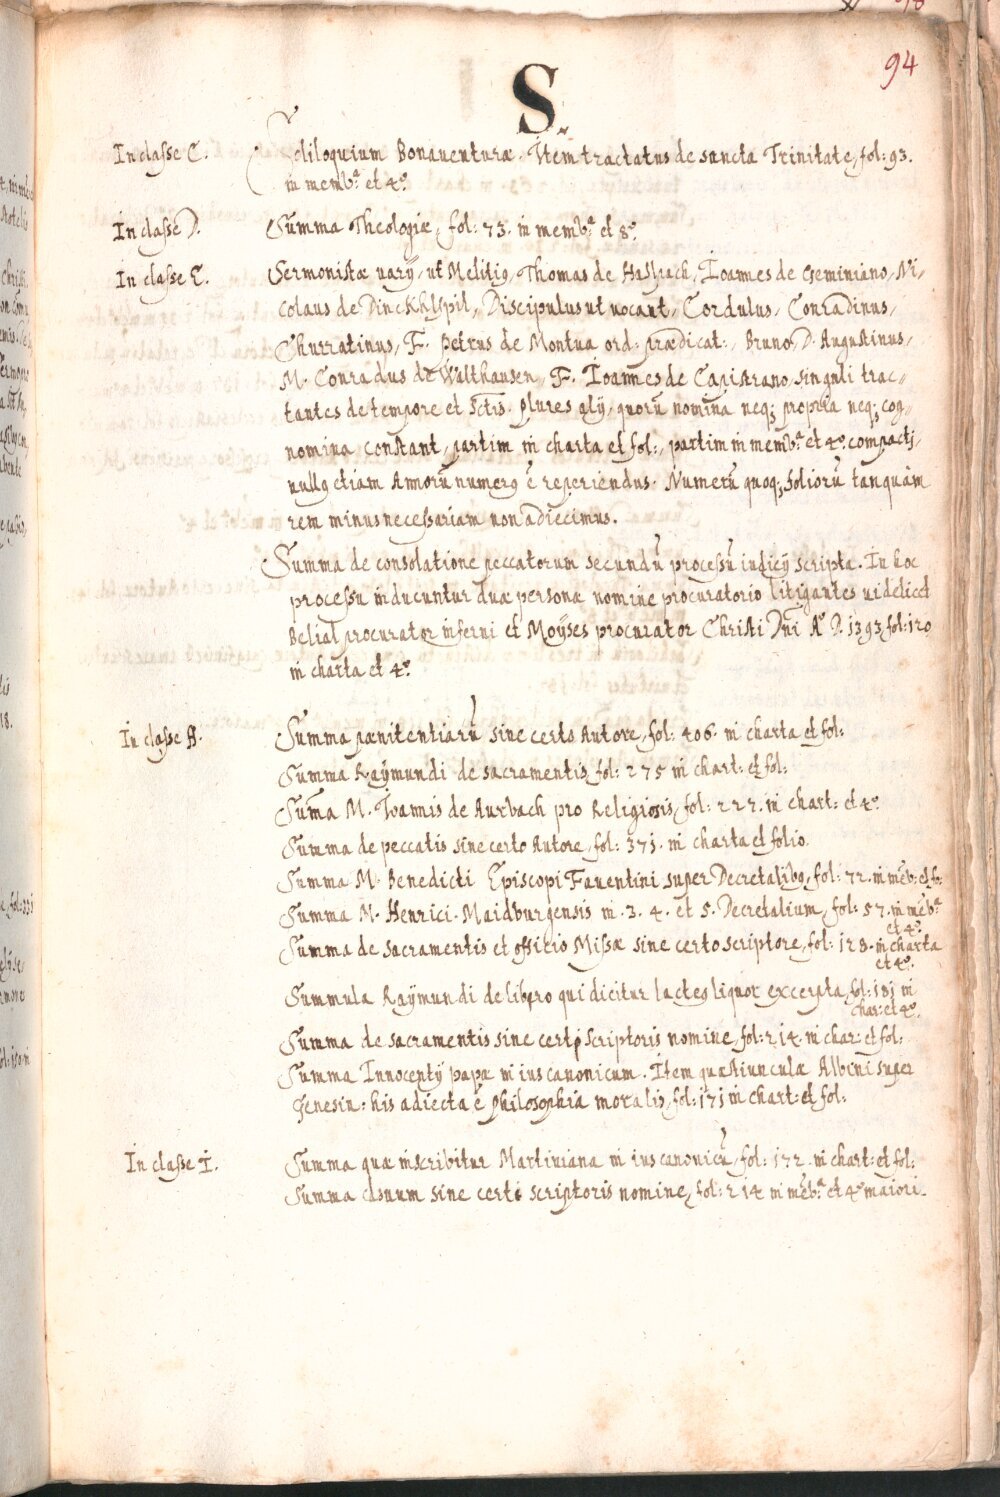 94
S.
In classe C. Soliloquium Bonauenturæ. Item tractatus de sancta Trinitate, fol: 93.
in memb.ª et 4º.
In classe D. Summa Theologiæ, fol: 73. in memb.ª et 8º.
In classe E. Sermonistæ varÿ, ut Melitig, Thomas de Haslpach, Ioannes de Geminiano, Ni,
colaus de Dinckhlspil, Discipulus ut uocant, Cordulus, Conradinus,
Churratinus, F. Petrus de Montua ord: prædicat:, Bruno, D. Augustinus,
M. Conradus de Walthausen, F. Ioannes de Capistrano, singuli trac,,
tantes de tempore et sctis. plures alÿ, quorũ nomina neq; propria neq; cog,,
nomina constant, partim in charta et fol:, partim in memb.ª et 4º. compacti,
nullg etiam Annorũ numerg ẽ reperiendus. Numerũ quoq; foliorũ tanquàm
rem minus necessariam non adiecimus.
Summa de consolatione peccatorum secundũ processũ iudicÿ scripta. In hoc
processu inducuntur duæ personæ nomine procuratorio litigantes uidelicet
Belial procurator inferni et Moÿses procurator Christi Dñi Aº D. 1393, fol: 120
in charta et 4º.
In classe H. Summa pænitentiarũ sine certo Autore, fol: 406. in charta et fol:
Summa Raÿmundi de sacramentis, fol: 275 in chart: et fol:
Sum̃a M. Ioannis de Aurbach pro Religiosis, fol: 222. in chart: et 4º.
Summa de peccatis sine certo Autore, fol: 371. in charta et folio.
Summa M. Benedicti Episcopi Fauentini super Decretalibg, fol: 72. in mẽb: et fo:
Summa M. Henrici Maidburgensis in 3. 4. et 5. Decretalium, fol: 57. in mẽb.ª
et 4º.
Summa de sacramentis et offitio Missæ sine certo scriptore, fol: 128. in charta
et 4º.
Summula Raÿmundi de libro qui dicitur lacteg liquor excerpta, fol: 181 in
char: et 4º.
Summa de sacramentis sine certi scriptoris nomine, fol: 214. in char: et fol:
Summa Innocentÿ papæ in ius canonicum. Item quæstiunculæ Albini super
Genesin: his adiecta ẽ philosophia moralis, fol: 171 in chart: et fol:
In classe I. Summa quæ inscribitur Martiniana in ius canonicũ, fol: 172. in chart: et fol:
Summa casuum sine certi scriptoris nomine, fol: 214 in mẽb.ª et 4º maiori.